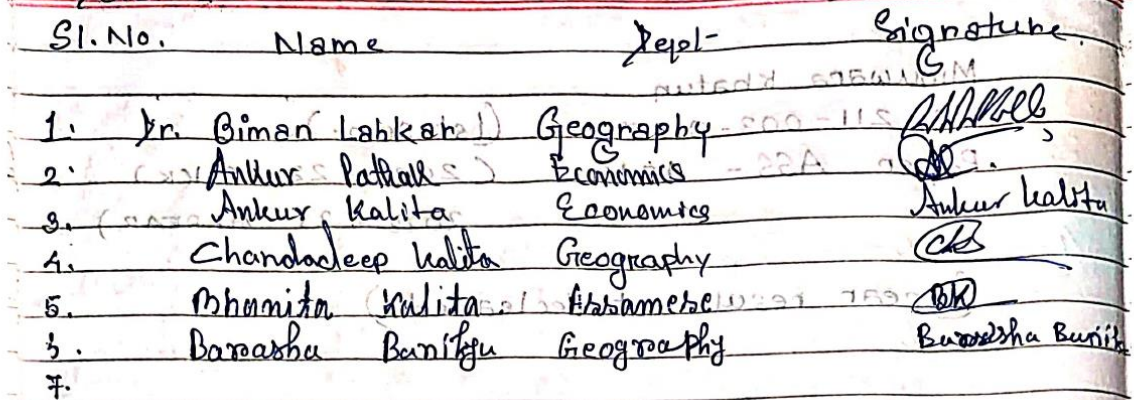 Sl. No. Name Dept- Signature.
1. Dr. Biman Lahkar Geography
2. Ankur Pathak Economics
3. Ankur Kalita Economics Ankur Kalita
4. Chandadeep Kalita Geography
5. Bhanita Kalita Assamese BK
6. Barasha Banikya Geography
7.